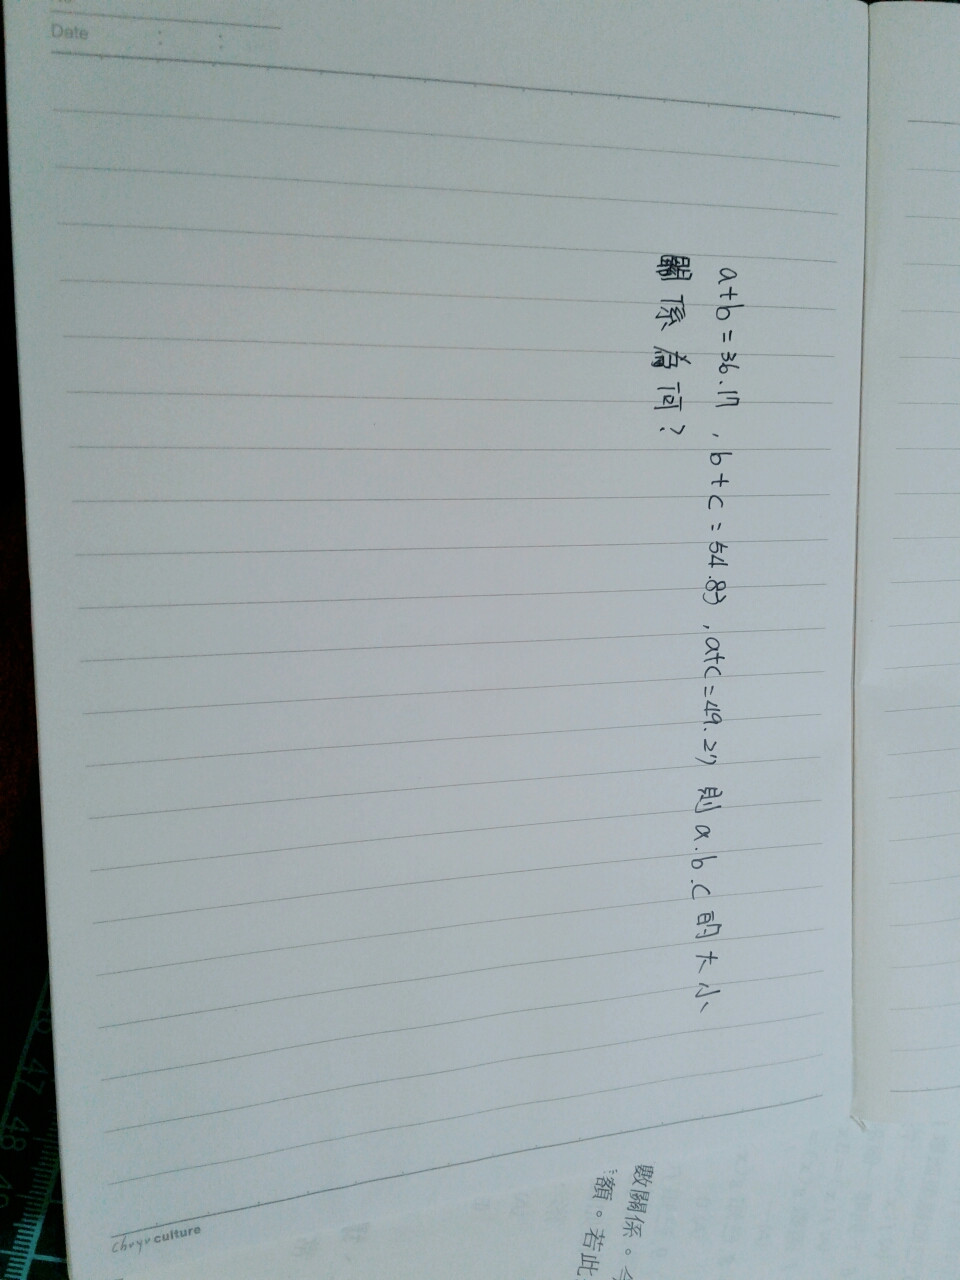 Date : :
a+b=36.17，b+c=54.83，a+c=49.27 則 a.b.c 的大小
關係為何？
culture
數關係。
額。若此
47
48